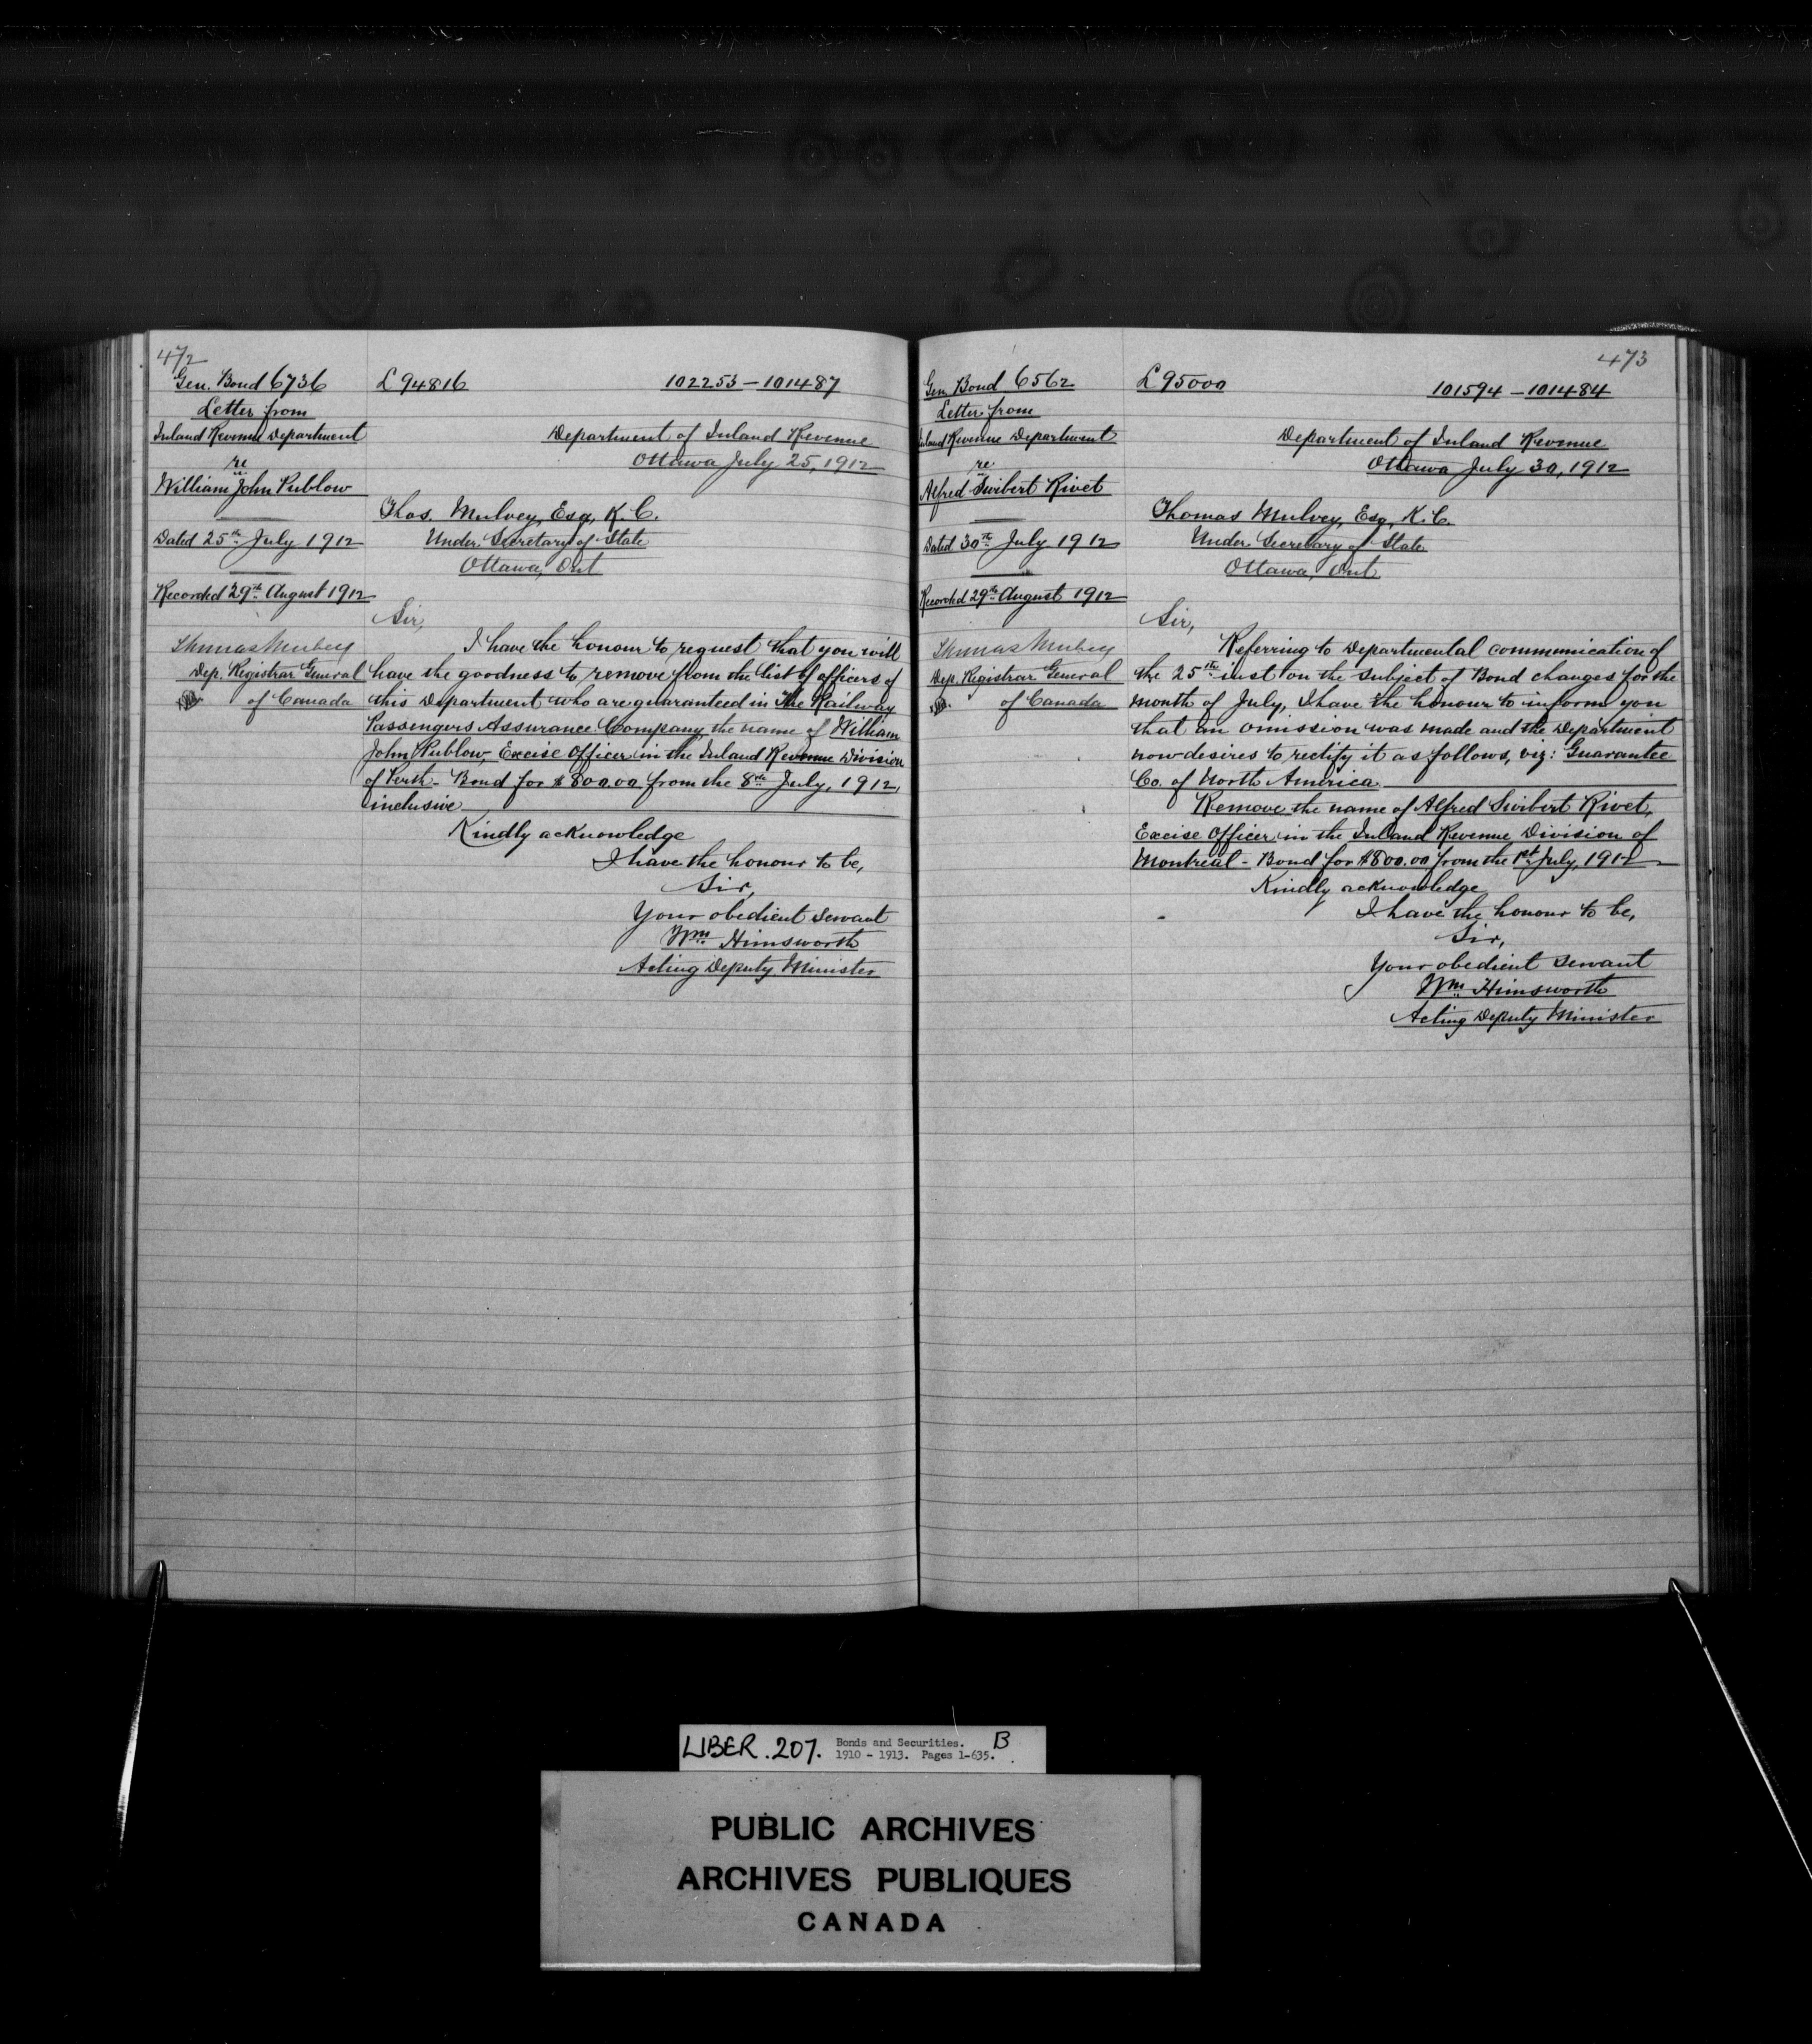 472
Gen. Bond 6736
Letter from
Inland Revenue Department
re
William John Publow
Dated 25th July 1912
Recorded 29th August 1912
Thomas Mulvey
Dep. Registrar General
of Canada
L 94816
102253 - 101487
Department of Inland Revenue
Ottawa July 25, 1912
Thos. Mulvey, Esq, K.C.
Under Secretary of State
Ottawa, Ont
Sir,
I have the honour to request that you will
have the goodness to remove from the list of officers of
this Department who are guaranteed in The Railway
Passengers Assurance Company, the name of William
John Publow, Excise Officer in the Inland Revenue Division
of Perth - Bond for $800.00 from the 8th July, 1912,
inclusive
Kindly acknowledge
I have the honour to be,
Sir,
Your obedient servant
Wm Himsworth
Acting Deputy Minister
473
Gen Bond 6562
Letter from
Inland Revenue Department
re
Alfred Swibert Rivet
Dated 30th July 1912
Recorded 29th August 1912
Thomas Mulvey
Dep. Registrar General
of Canada
L 95000
101594 - 101484
Department of Inland Revenue
Ottawa July 30, 1912
Thomas Mulvey, Esq, K.C.
Under Secretary of State
Ottawa, Ont
Sir,
Referring to Departmental communication of
the 25th inst on the subject of Bond changes for the
month of July, I have the honour to inform you
that an omission was made and the Department
now desires to rectify it as follows, viz: Guarantee
Co. of North America.
Remove the name of Alfred Swibert Rivet,
Excise Officer in the Inland Revenue Division of
Montreal - Bond for $800.00 from the 1st July, 1912
Kindly acknowledge
I have the honour to be,
Sir,
Your obedient servant
Wm Himsworth
Acting Deputy Minister
LIBER. 207. Bonds and Securities. B
1910 - 1913. Pages 1-635.
PUBLIC ARCHIVES
ARCHIVES PUBLIQUES
CANADA